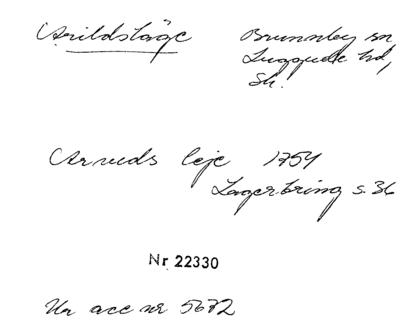 Arildsläge Brunnby sn
Luggude hd,
Sk.
Arvids leje 1754
Lagerbring s. 36
Nr 22330
Ur acc nr 5672